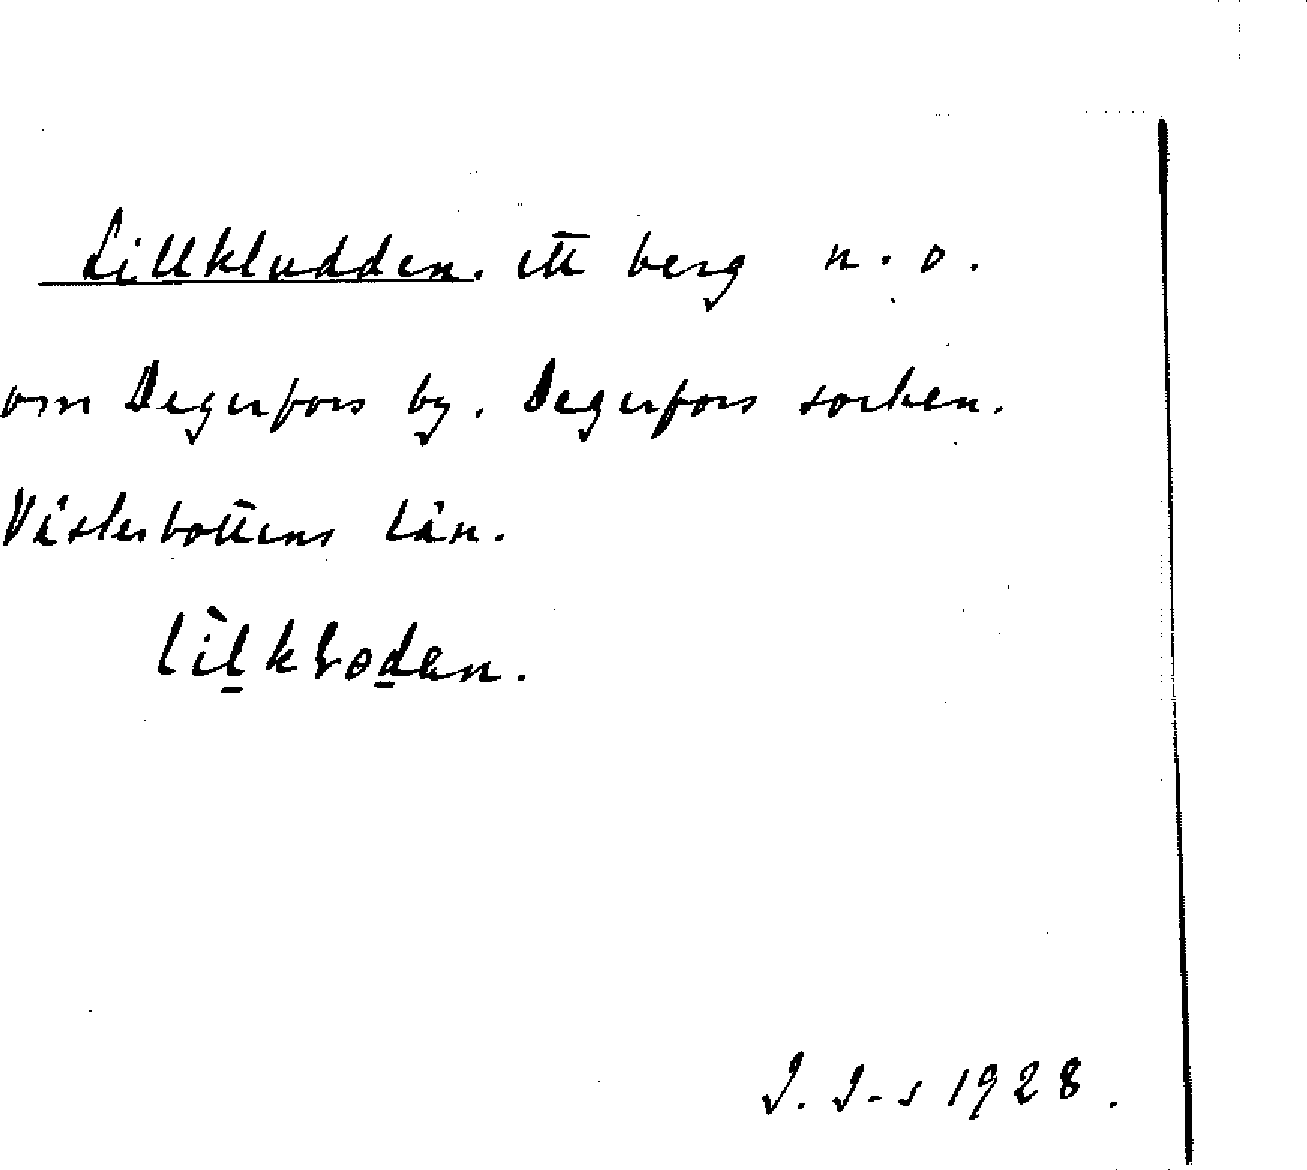 Lillkludden. ett berg n. o.
om Degerfors by. Degerfors socken.
Västerbottens län.
lìlkloden.
J. J-s 1928.